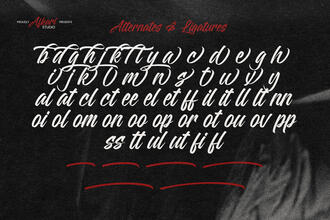 PROUDLY Alkari STUDIO PRESENTS
Alternates & Ligatures
b d g h f k l t y a c d e g h
i j k l m n s t u v y
al at cl ct ee el et ff il it ll it nn
oi ol om on oo op or ot ou ov pp
ss tt ul ut fi fl